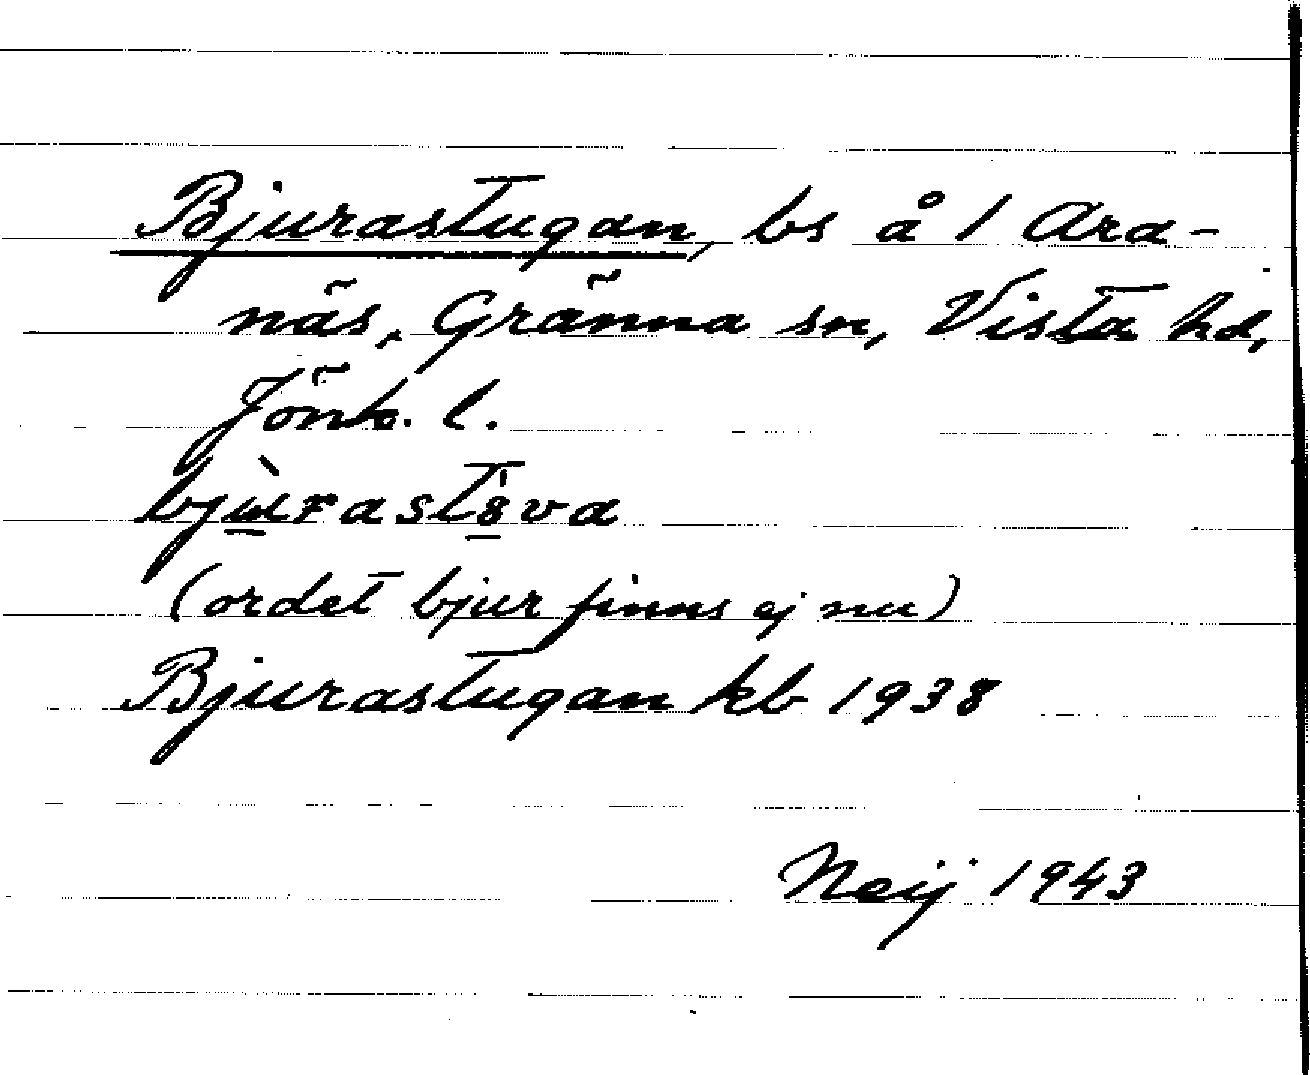 Bjurastugan, bs å 1 Ara-
näs, Gränna sn, Vista hd,
Jönk. l.
(ordet bjur finns ej nu)
Bjurastugan kb 1938
Neij 1943